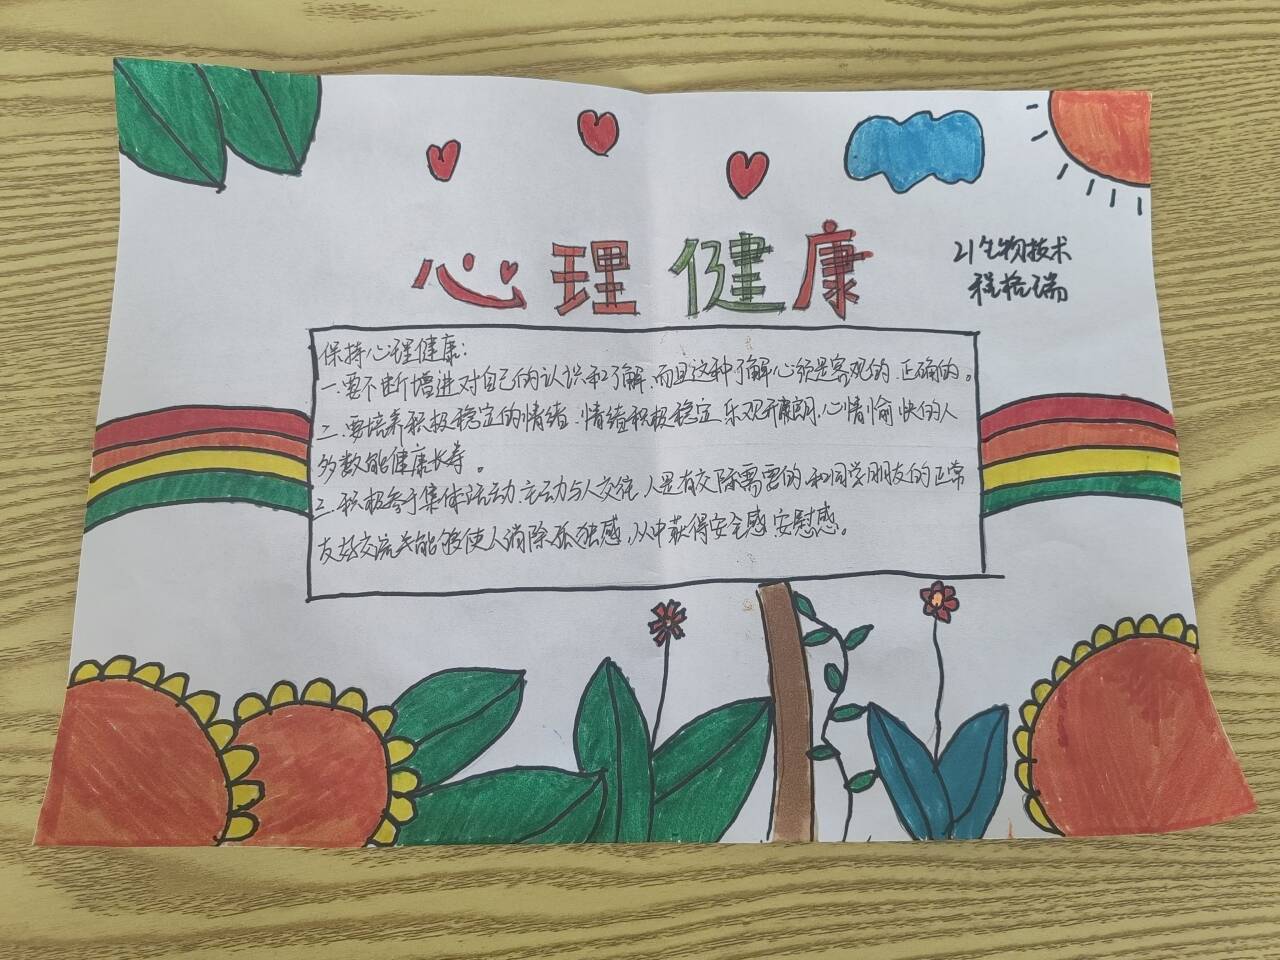 心理健康
21生物技术
程格瑞
保持心理健康:
一.要不断增进对自己的认识和了解.而且这种了解必须是客观的.正确的。
二.要培养积极稳定的情绪.情绪积极稳定.乐观开朗.心情愉快的人
多数能健康长寿。
三.积极参于集体活动.主动与人交往.人是有交际需要的.和同学朋友的正常
友好交流关能够使人消除孤独感,从中获得安全感.安慰感。